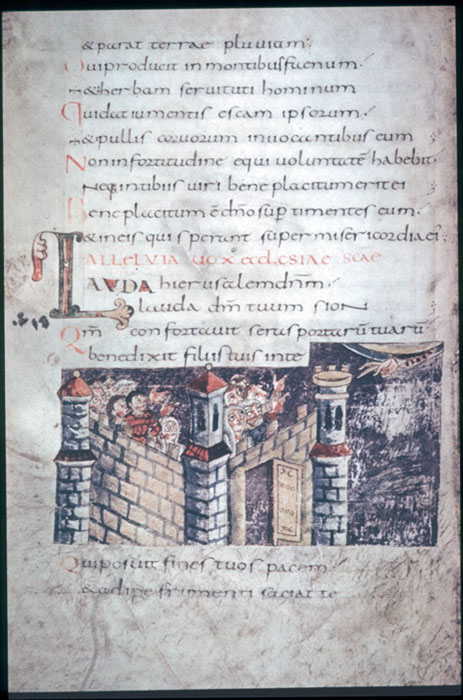 & parat terrae pluviam
Qui producit in montibus faenum
& herbam servituti hominum
Qui dat iumentis escam ipsorum
& pullis corvorum invocantibus eum
Non in fortitudine equi voluntatē habebit
neq; in tibiis viri bene placitum erit ei
Bene placitum ē dn̄o sup timentes eum
& in eis qui sperant super misericordia ei
ALLELVIA vox ecclesiae
LAVDA hierusalem dn̄m
lauda dm̄ tuum sion
Qm̄ confortavit seras portarū tuarū
benedixit filiis tuis in te
Qui posuit fines tuos pacem
& adipe frumenti satiat te